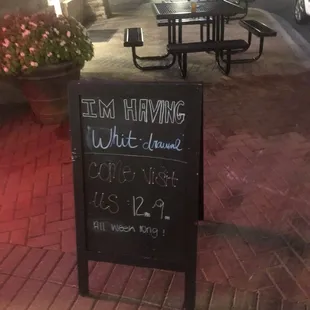 I'M HAVING
"Whit-drawal"
COME VISIT
US 12.9.
All Week long!